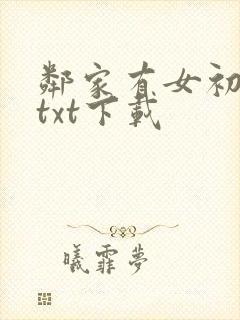 鄰家有女初
txt下載
曦霏夢